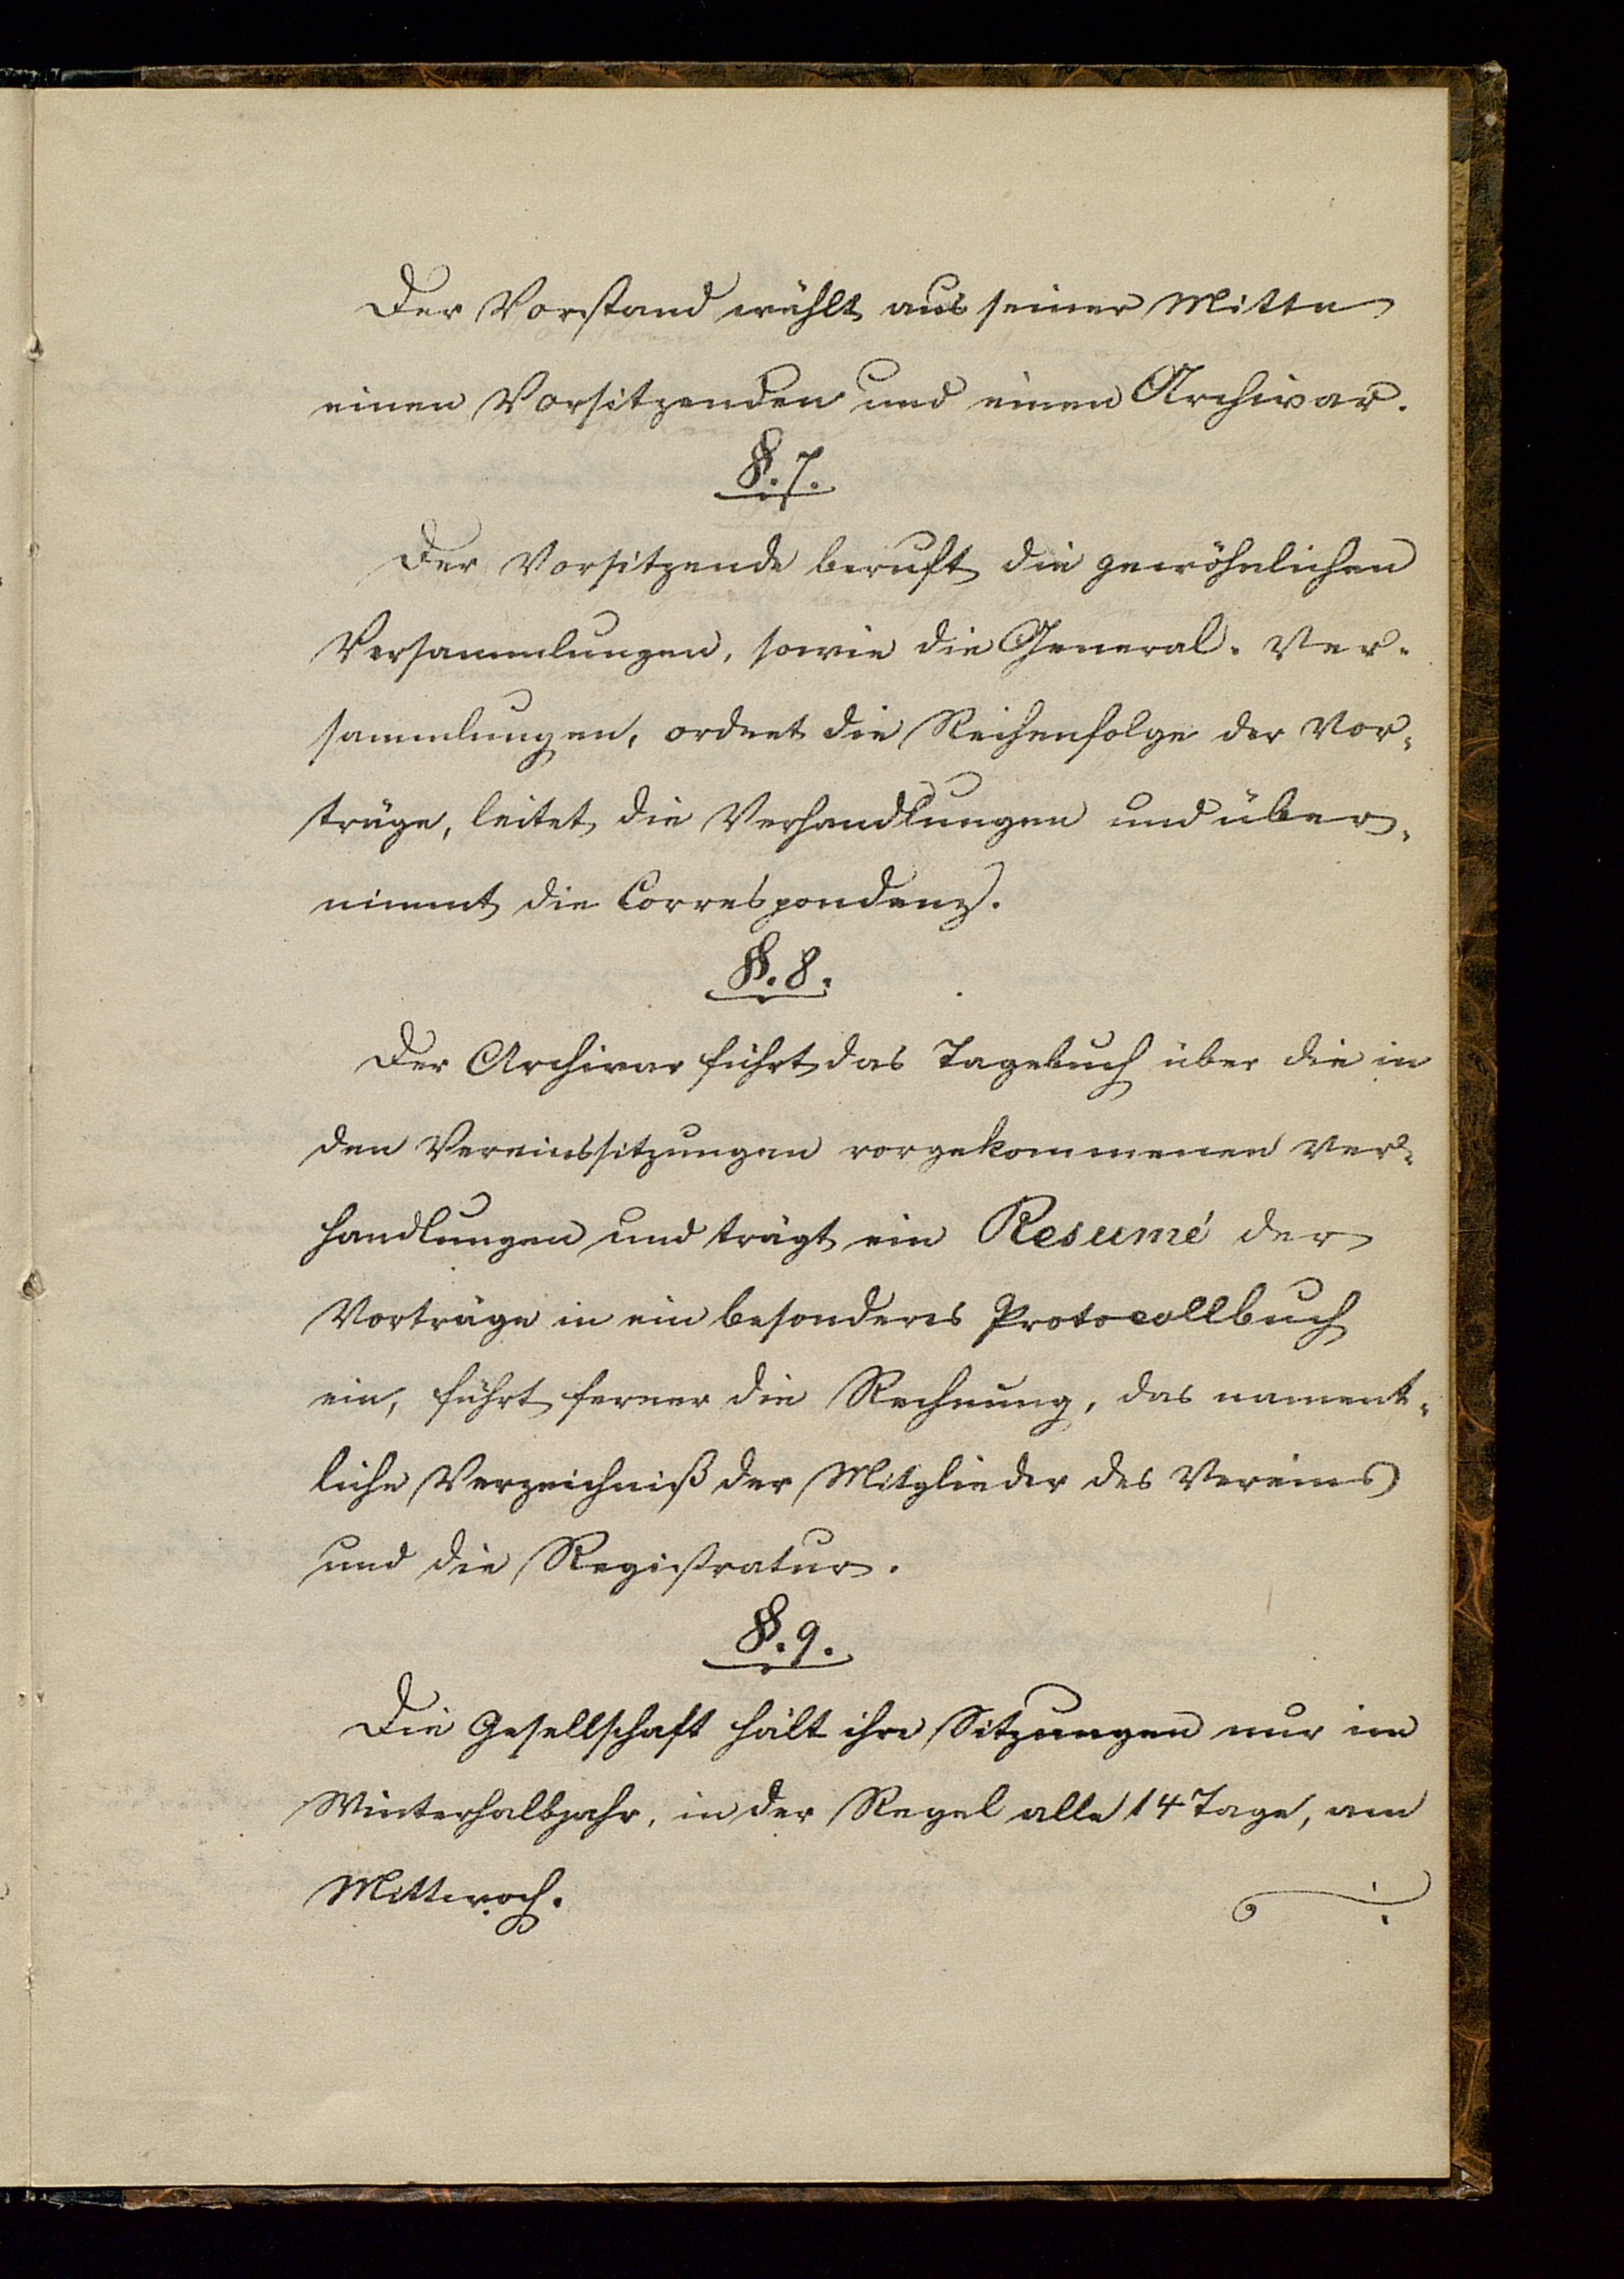 Der Vorstand wählt aus seiner Mitte
einen Vorsitzenden und einen Archivar.
§. 7.
Der Vorsitzende beruft die gewöhnlichen
Versammlungen, sowie die General-Ver-
sammlungen, ordnet die Reihenfolge der Vor-
träge, leitet die Verhandlungen und über-
nimmt die Correspondenz.
§. 8.
Der Archivar führt das Tagebuch über die in
den Vereinssitzungen vorgekommenen Ver-
handlungen und trägt ein Resumé der
Vorträge in ein besonderes Protocollbuch
ein, führt ferner die Rechnung, das nament-
liche Verzeichniß der Mitglieder des Vereins
und die Registratur.
§. 9.
Die Gesellschaft hält ihre Sitzungen nur im
Winterhalbjahr, in der Regel alle 14 Tage, am
Mittwoch.